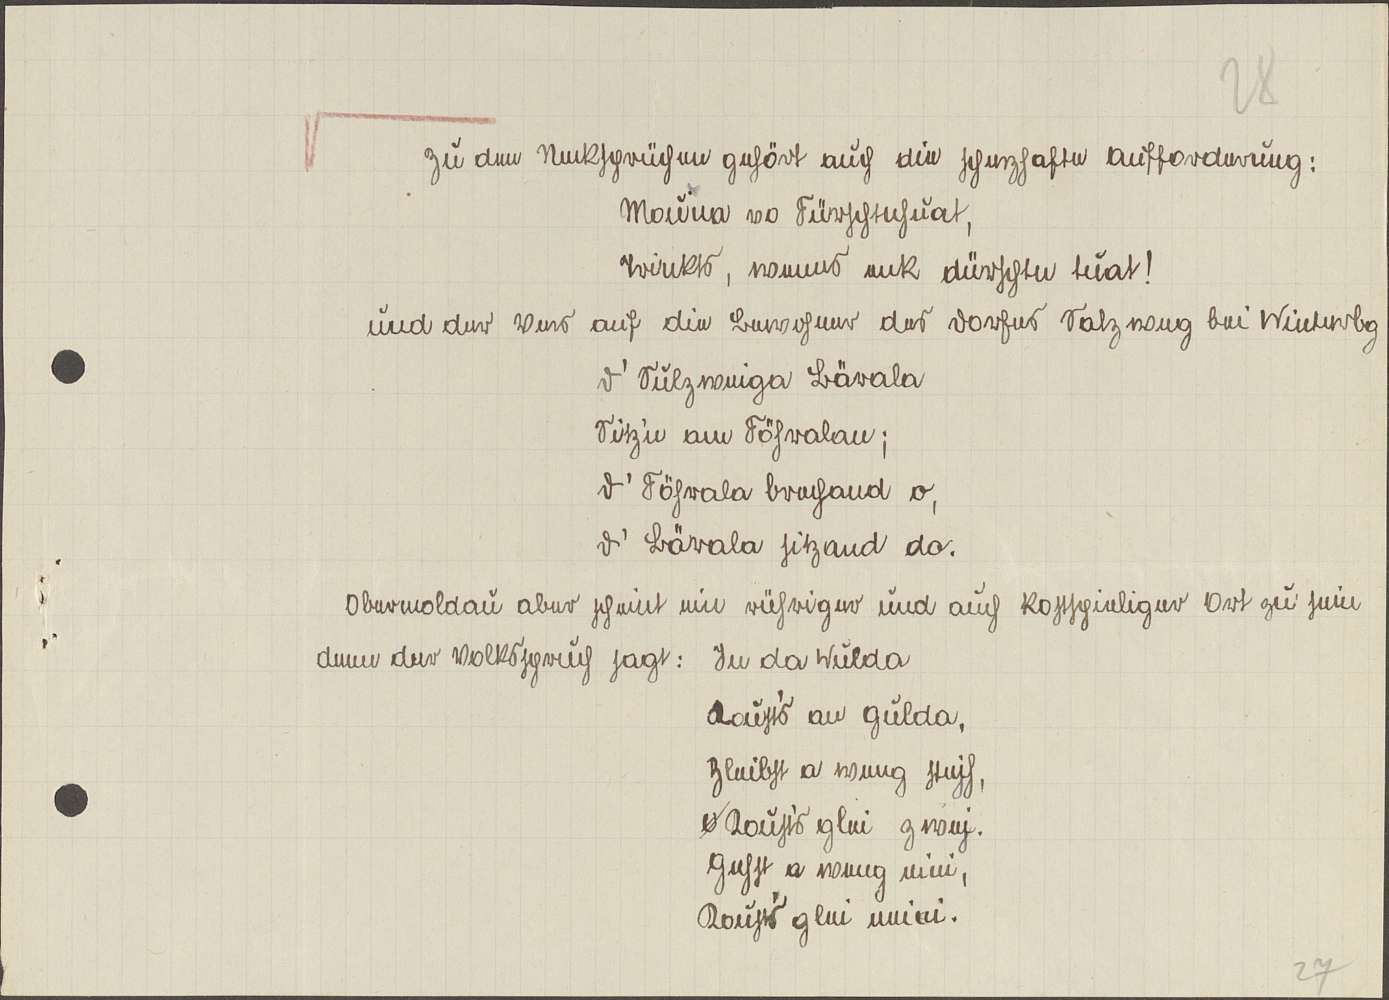 28
Zu den Necksprüchen gehört auch die scherzhafte Aufforderung:
vo Fürschtehuat,
Trinkts, wenns enk dürschtn tuat!
und der Vers auf die Bewohner des Dorfes Salzweg bei Winterbg
D' Sulzweiga Bärala
Sitz'n am Föhralan;
D' Föhrala brechand o,
D' Bärala sitzand do.
Obermoldau aber scheint ein rühriger und auch kostspieliger Ort zu sein
denn der Volksspruch sagt: In da Wulda
Koust's an Gulda,
Bleibst a weng stejh,
Koust's glei zwej.
Gehst a weng eini,
Koust's glei neini.
27